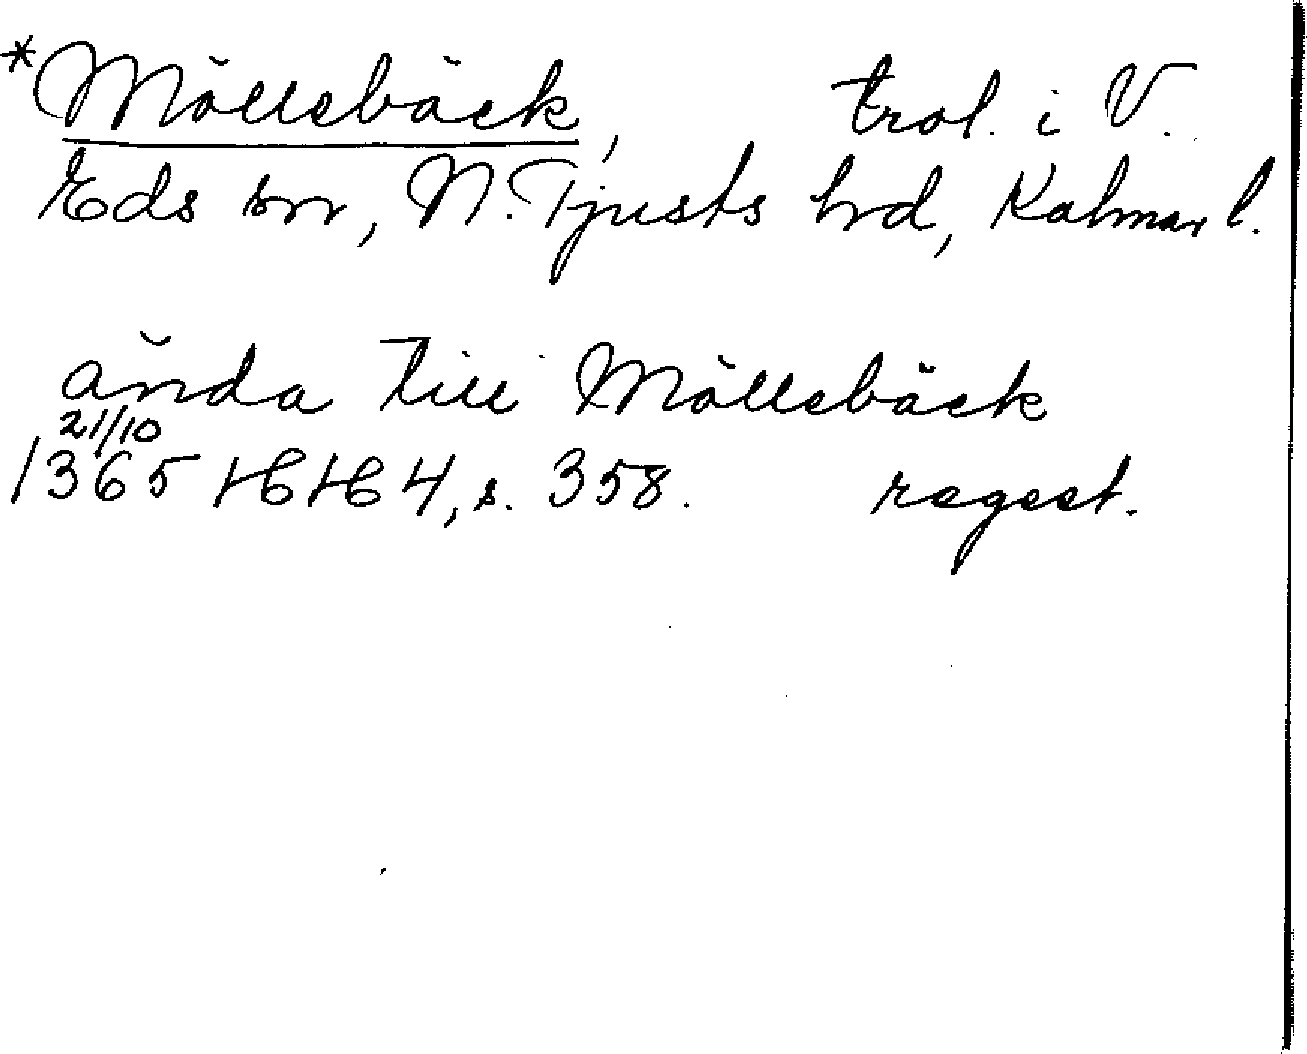 *Möllebäck, trol. i V.
Eds sn, N. Tjusts hd, Kalmar l.
ända till Möllebäck
21/10
1365 HH 4, s. 358. regest.